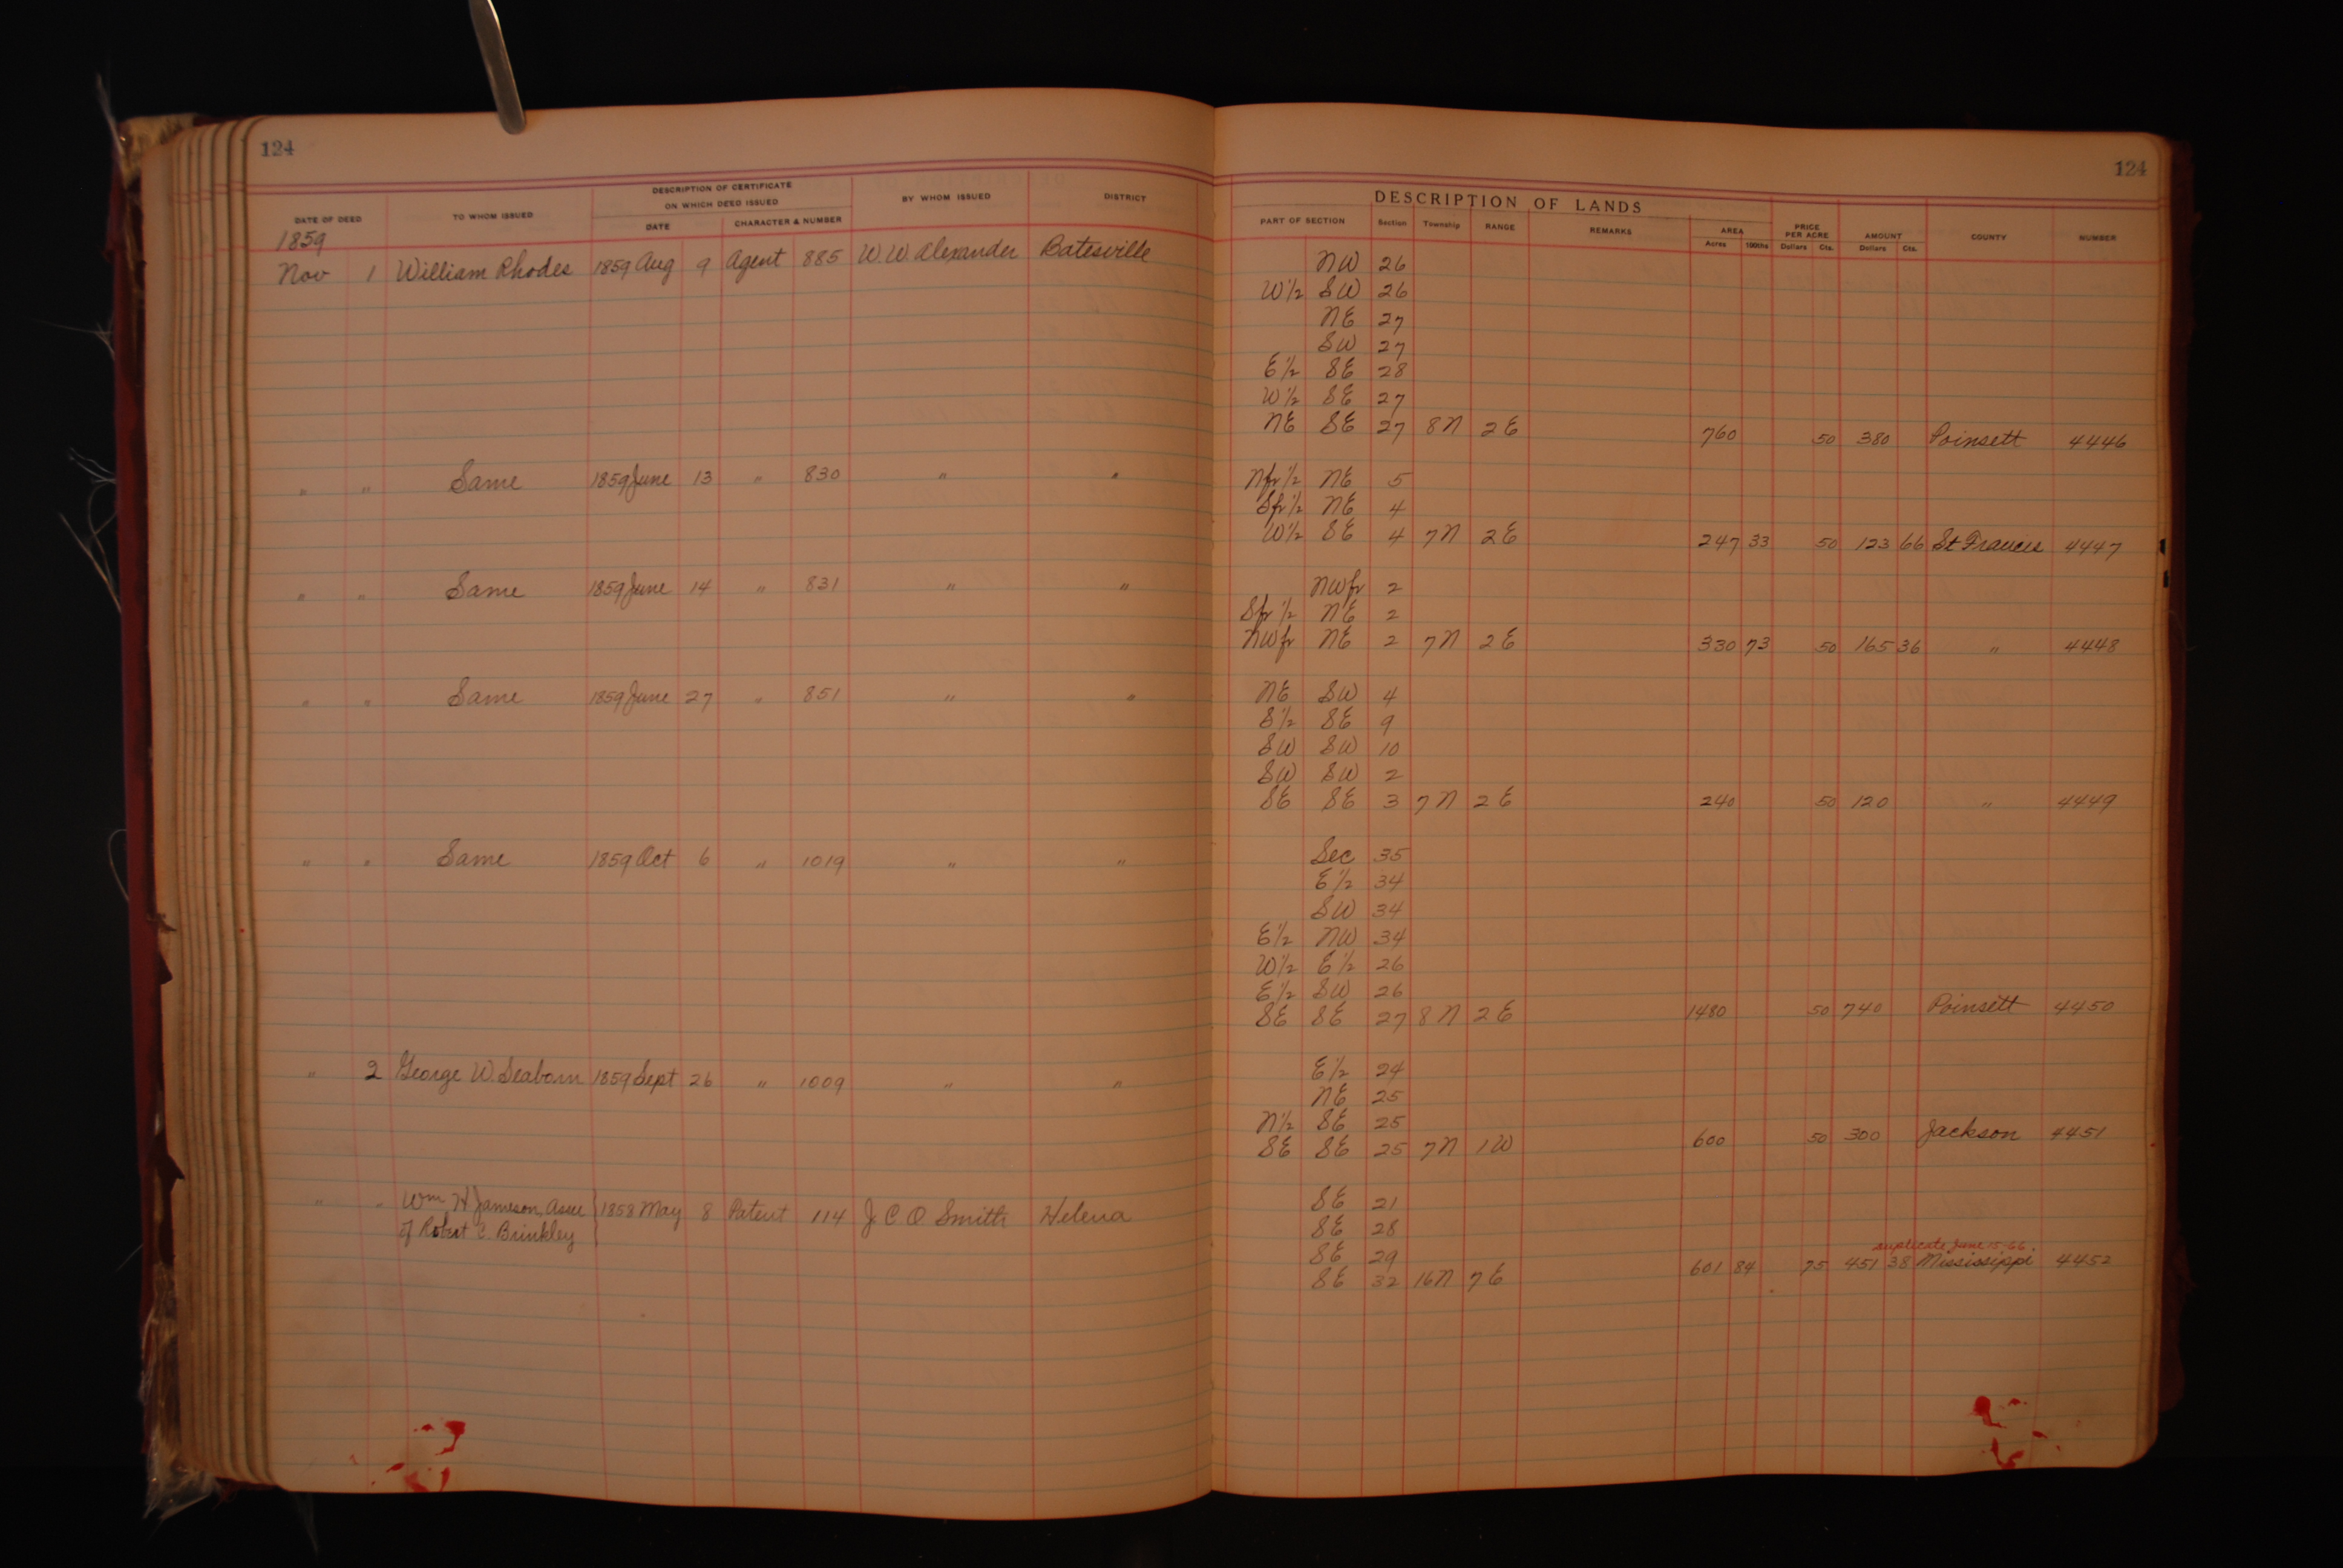 124
DATE OF DEED TO WHOM ISSUED DESCRIPTION OF CERTIFICATE ON WHICH DEED ISSUED DATE CHARACTER & NUMBER BY WHOM ISSUED DISTRICT
1859
Nov 1 William Rhodes 1859 Aug 9 Agent 885 W. W. Alexander Batesville
" " Same 1859 June 13 " 830 " "
" " Same 1859 June 14 " 831 " "
" " Same 1859 June 27 " 851 " "
" " Same 1859 Oct 6 " 1019 " "
" 2 George W. Seaborn 1859 Sept 26 " 1009 " "
" " Wm H Jameson, Assee } 1858 May 8 Patent 114 J C. O Smith Helena
of Robert C. Brinkley
124
DESCRIPTION OF LANDS
PART OF SECTION Section Township RANGE REMARKS AREA Acres 100ths PRICE PER ACRE Dollars Cts. AMOUNT Dollars Cts. COUNTY NUMBER
NW 26
W½ SW 26
NE 27
SW 27
E½ SE 28
W½ SE 27
NE SE 27 8N 2E 760 50 380 Poinsett 4446
Nfr½ NE 5
Sfr½ NE 4
W½ SE 4 7N 2E 247 33 50 123 66 St Frances 4447
NWfr 2
Sfr½ NE 2
NWfr NE 2 7N 2E 330 73 50 165 36 " 4448
NE SW 4
S½ SE 9
SW SW 10
SW SW 2
SE SE 3 7N 2E 240 50 120 " 4449
Sec 35
E½ 34
SW 34
E½ NW 34
W½ E½ 26
E½ SW 26
SE SE 27 8N 2E 1480 50 740 Poinsett 4450
E½ 24
NE 25
N½ SE 25
SE SE 25 7N 1W 600 50 300 Jackson 4451
SE 21
SE 28
duplicate June 15, 66.
SE 29
SE 32 16N 7E 601 84 75 451 38 Mississippi 4452